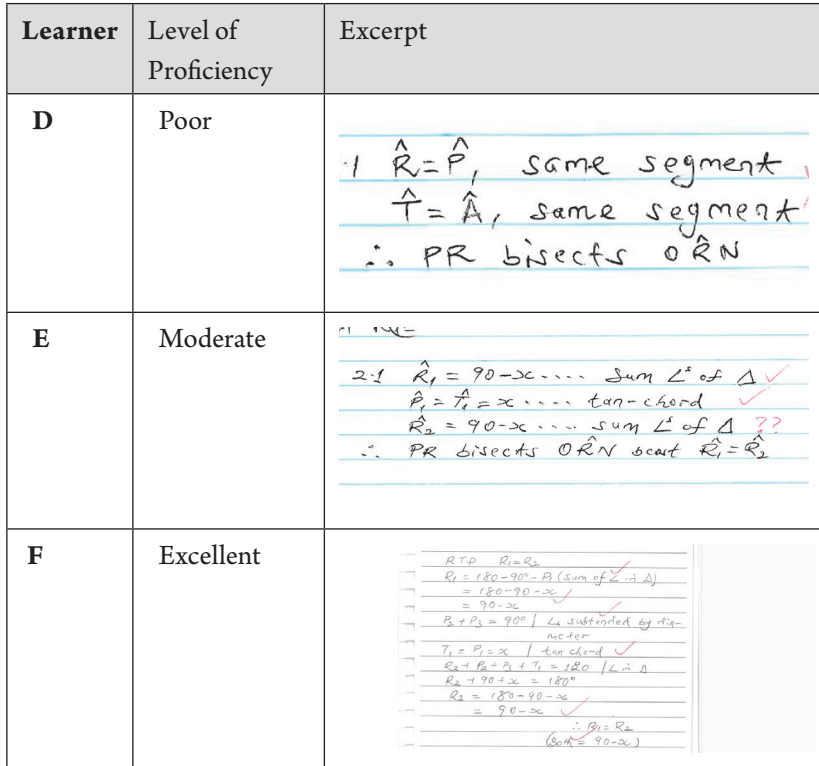 Learner Level of Proficiency Excerpt
D Poor
·1 R̂ = P̂, same segment
T̂ = Â, same segment
∴ PR bisects OR̂N
E Moderate
2·1 R̂₁ = 90 - x .... Sum ∠ˢ of Δ ✓
P̂₁ = T̂₁ = x .... tan-chord ✓
R̂₂ = 90 - x .... sum ∠ˢ of Δ ??
∴ PR bisects OR̂N R̂₁ = R̂₂
F Excellent
RTP R₁ = R₂
R₁ = 180 - 90° - P₁ (Sum of ∠ in Δ)
= 180 - 90 - x ✓
= 90 - x
P₂ + P₃ = 90° | ∠s subtended by dia-
meter
T₁ = P₁ = x | tan chord ✓
R₂ + P₂ + P₃ + T₁ = 180 | ∠ in Δ
R₂ + 90 + x = 180°
R₂ = 180 - 90 - x
= 90 - x ✓
∴ R₁ = R₂
(Both = 90 - x)